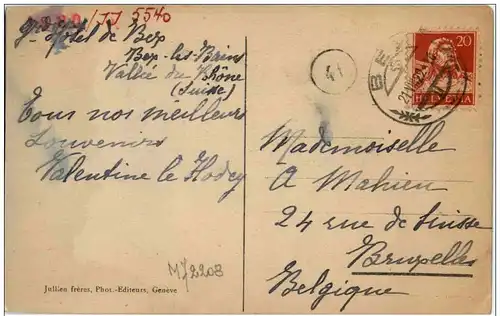 JJ 5540
Gd Hôtel de Bex
Bex-les-Bains
Vallée du Rhône
(Suisse)
Tous nos meilleurs
Souvenirs
Valentine le Hodey
M72208
Jullien frères, Phot.-Editeurs, Genève
41
BEX
20
HELVETIA
Mademoiselle
A Mahieu
24 rue de Suisse
Bruxelles
Belgique